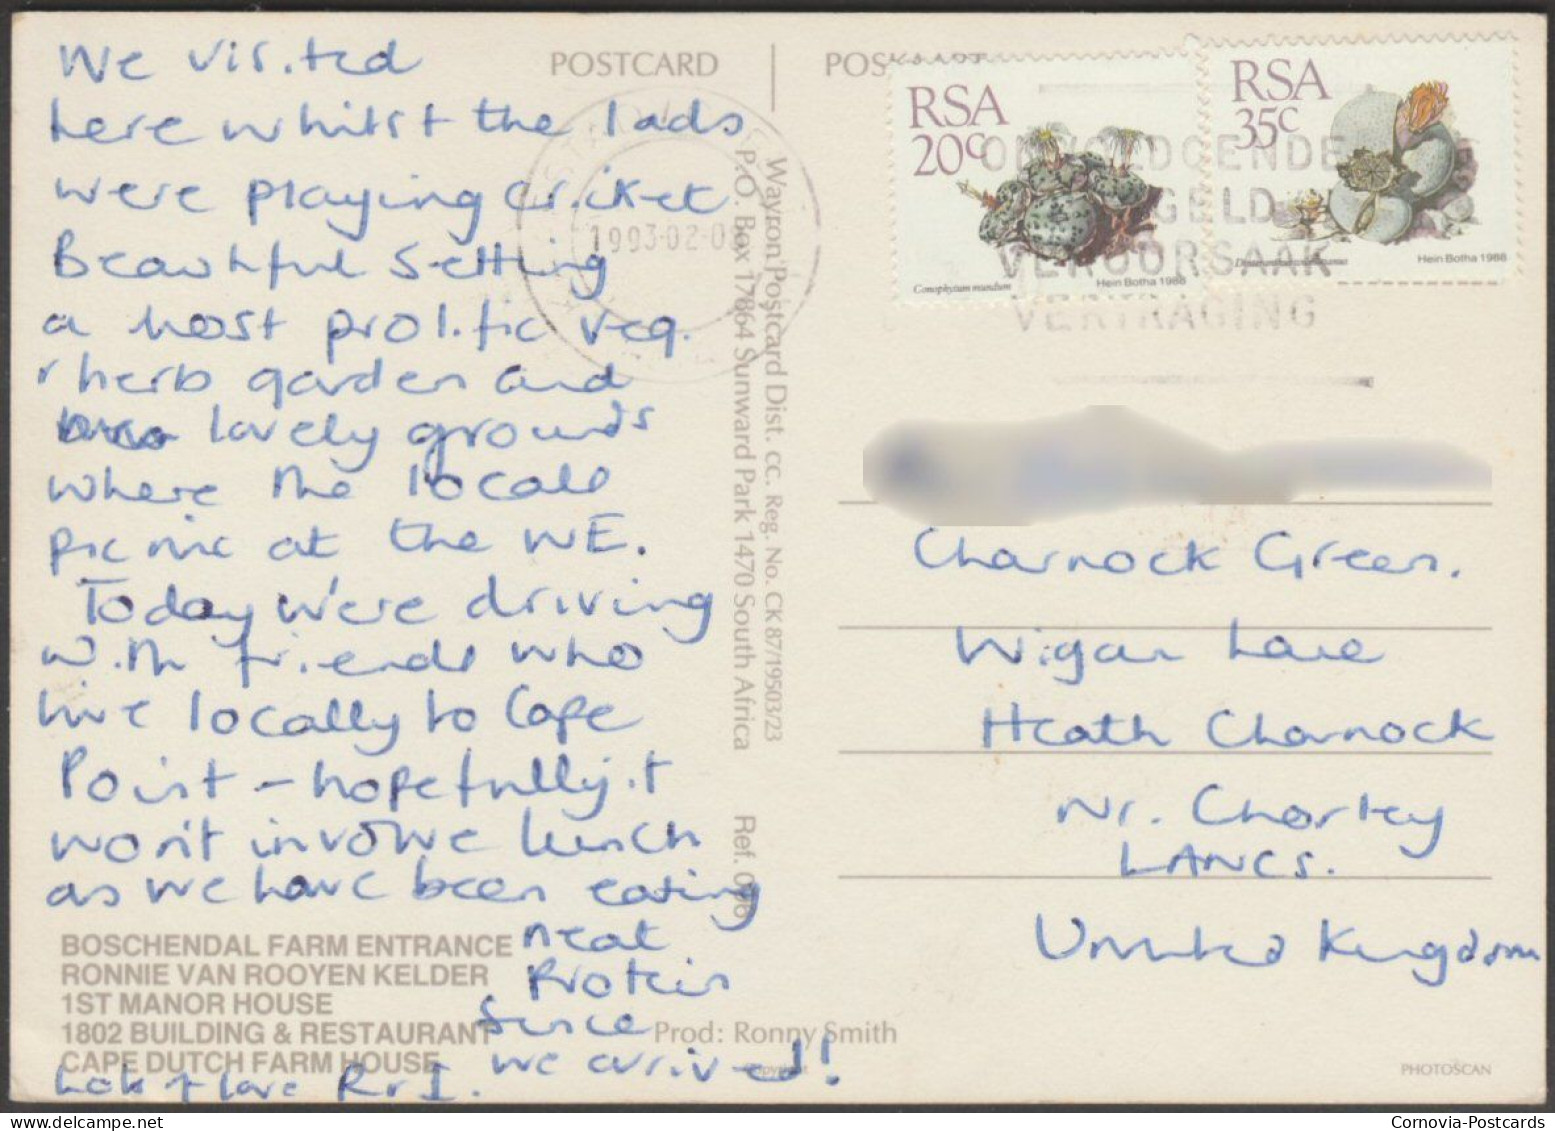 We visited
here whilst the lads
were playing cricket
Beautiful setting
a most prolific veg.
+ herb garden and
lovely grounds
where the locals
picnic at the WE.
Today we're driving
with friends who
live locally to Cape
Point – hopefully it
won't involve lunch
as we have been eating
neat
protein
since
we arrived!
Lots of love R + I.
POSTCARD
POSKAART
RSA
20c
Conophytum mundum
Hein Botha 1988
RSA
35c
Hein Botha 1988
1993-02-0
ONVOLDOENDE
POSGELD
VEROORSAAK
VERTRAGING
Wayron Postcard Dist. cc. Reg. No. CK 87/19503/23
P.O. Box 17864 Sunward Park 1470 South Africa
Ref.
Charnock Green.
Wigan Lane
Heath Charnock
Nr. Chorley
LANCS.
United Kingdom
BOSCHENDAL FARM ENTRANCE
RONNIE VAN ROOYEN KELDER
1ST MANOR HOUSE
1802 BUILDING & RESTAURANT
CAPE DUTCH FARM HOUSE
Prod: Ronny Smith
Copyright
PHOTOSCAN
delcampe.net
Cornovia-Postcards